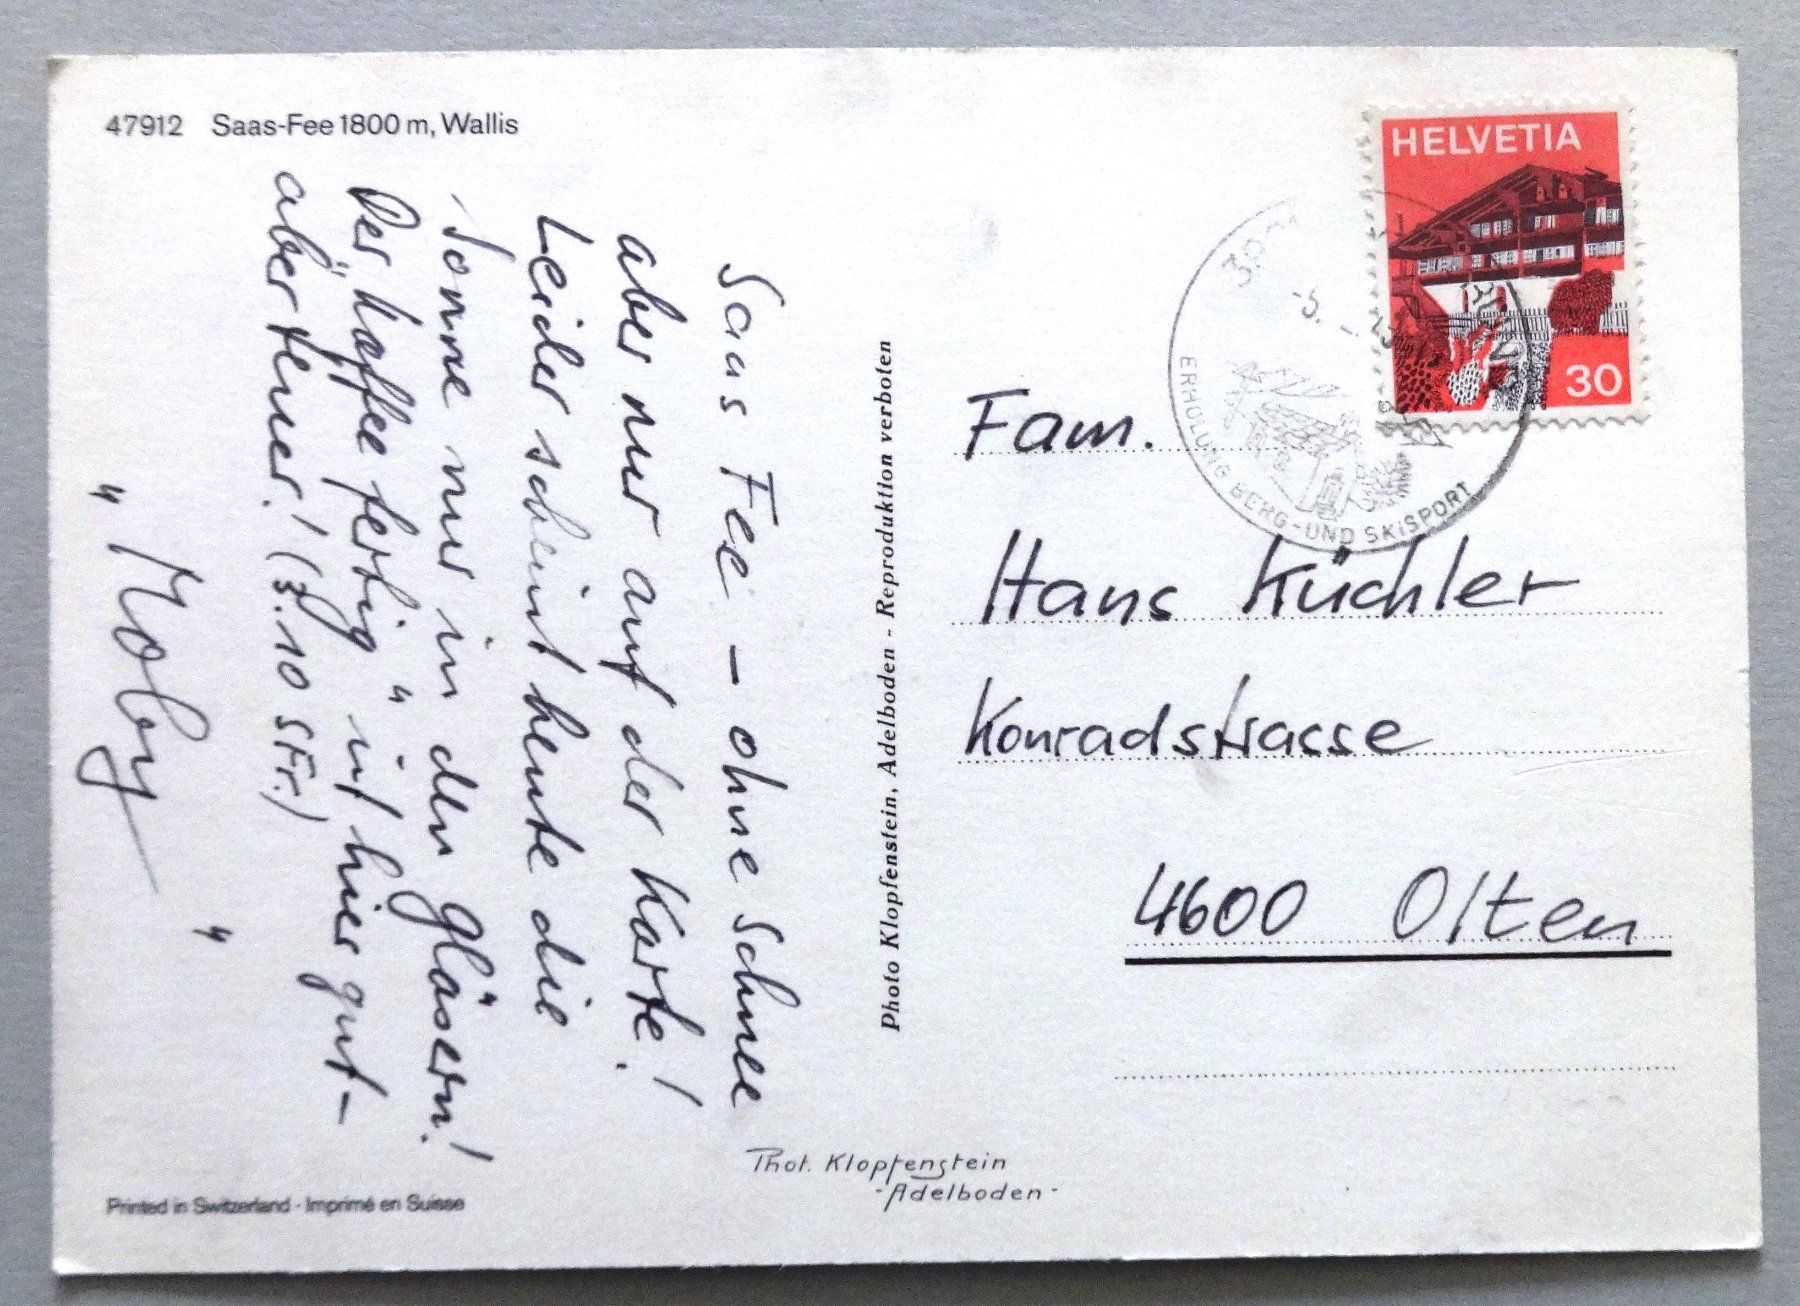 47912 Saas-Fee 1800 m, Wallis
Saas Fee - ohne Schnee
aber nur auf der Karte!
Leider scheint heute die
Sonne nur in den Gläsern!
Der "Kaffee fertig" ist hier gut -
aber teuer! (3.10 SFr.)
"Moby"
Printed in Switzerland · Imprimé en Suisse
Photo Klopfenstein, Adelboden - Reproduktion verboten
Phot. Klopfenstein
-Adelboden-
HELVETIA
30
ERHOLUNG BERG-UND SKISPORT
Fam.
Hans Küchler
Konradstrasse
4600 Olten